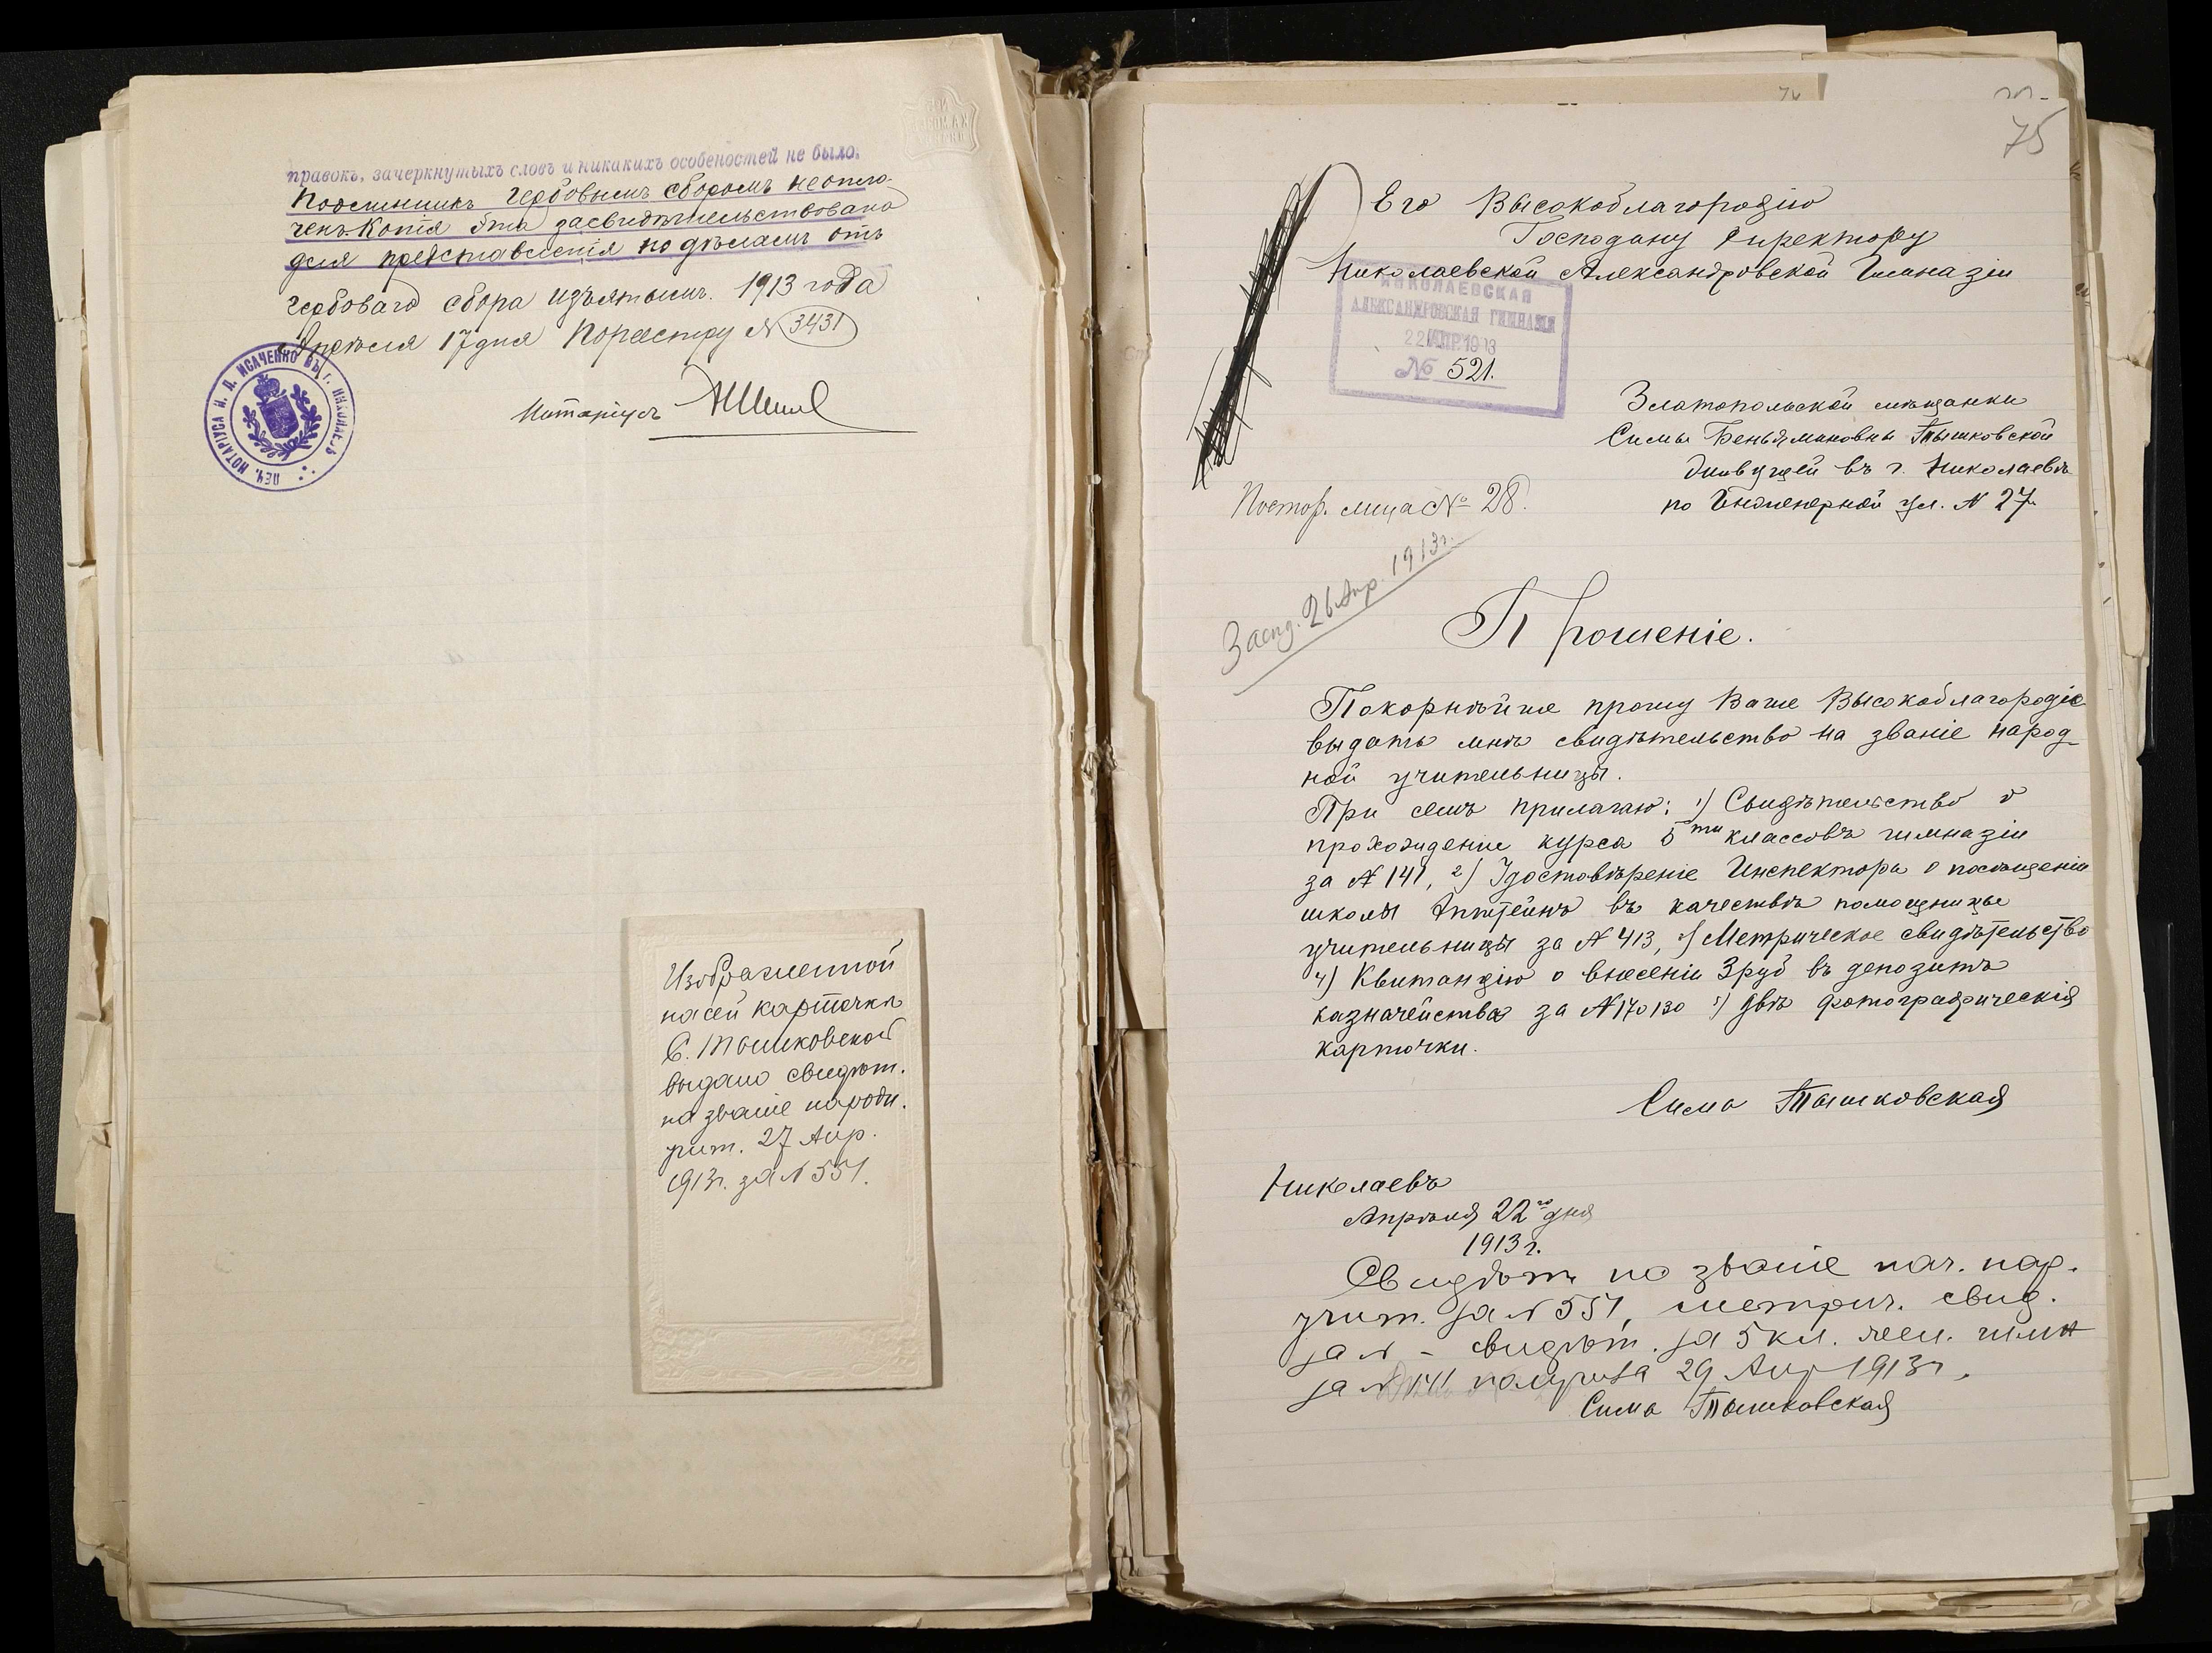 правокъ, зачеркнутыхъ словъ и никакихъ особеностей не было.
Подлинникъ гербовымъ сборомъ неопла-
ченъ. Копія эта засвидѣтельствована
для представленія по дѣламъ отъ
гербоваго сбора изъятымъ. 1913 года
Апрѣля 17 дня По реестру № 3431
Нотаріусъ
ПЕЧ. НОТАРІУСА И. П. ИСАЧЕНКО ВЪ Г. НИКОЛАЕВѢ
Изображенной
на сей карточкѣ
С. Тышковской
выдано свидѣт.
на званіе народн.
учит. 27 Апр.
1913г. за № 551.
74
75
Его Высокоблагородію
Господину Директору
Николаевской Александровской Гимназіи
НИКОЛАЕВСКАЯ
АЛЕКСАНДРОВСКАЯ ГИМНАЗІЯ
22 АПР. 1913
№ 521.
Златопольской мѣщанки
Симы Беньяминовны Тышковской
живущей въ г. Николаевѣ
по Инженерной ул. № 27
Постор. лица № 28.
Засѣд. 26 Апр. 1913г.
Прошеніе.
Покорнѣйше прошу Ваше Высокоблагородіе
выдать мнѣ свидѣтельство на званіе народ-
ной учительницы.
При семъ прилагаю: 1) Свидѣтельство о
прохождение курса 5ти классовъ гимназіи
за № 141, 2) Удостовѣреніе Инспектора о посѣщеніи
школы Эпштейнъ въ качествѣ помощницы
учительницы за № 413, 3) Метрическое свидѣтельство
4) Квитанцію о внесеніи 3 руб въ депозитъ
казначейства за № 170130 5) Двѣ фотографическія
карточки.
Сима Тышковская
Николаевъ
Апрѣля 22го дня
1913 г.
Свидѣт. на званіе нач. нар.
учит. за № 551, метрич. свид.
за № – свидѣт. за 5 кл. жен. гимн
за № 141 получила 29 Апр 1913г.
Сима Тышковская